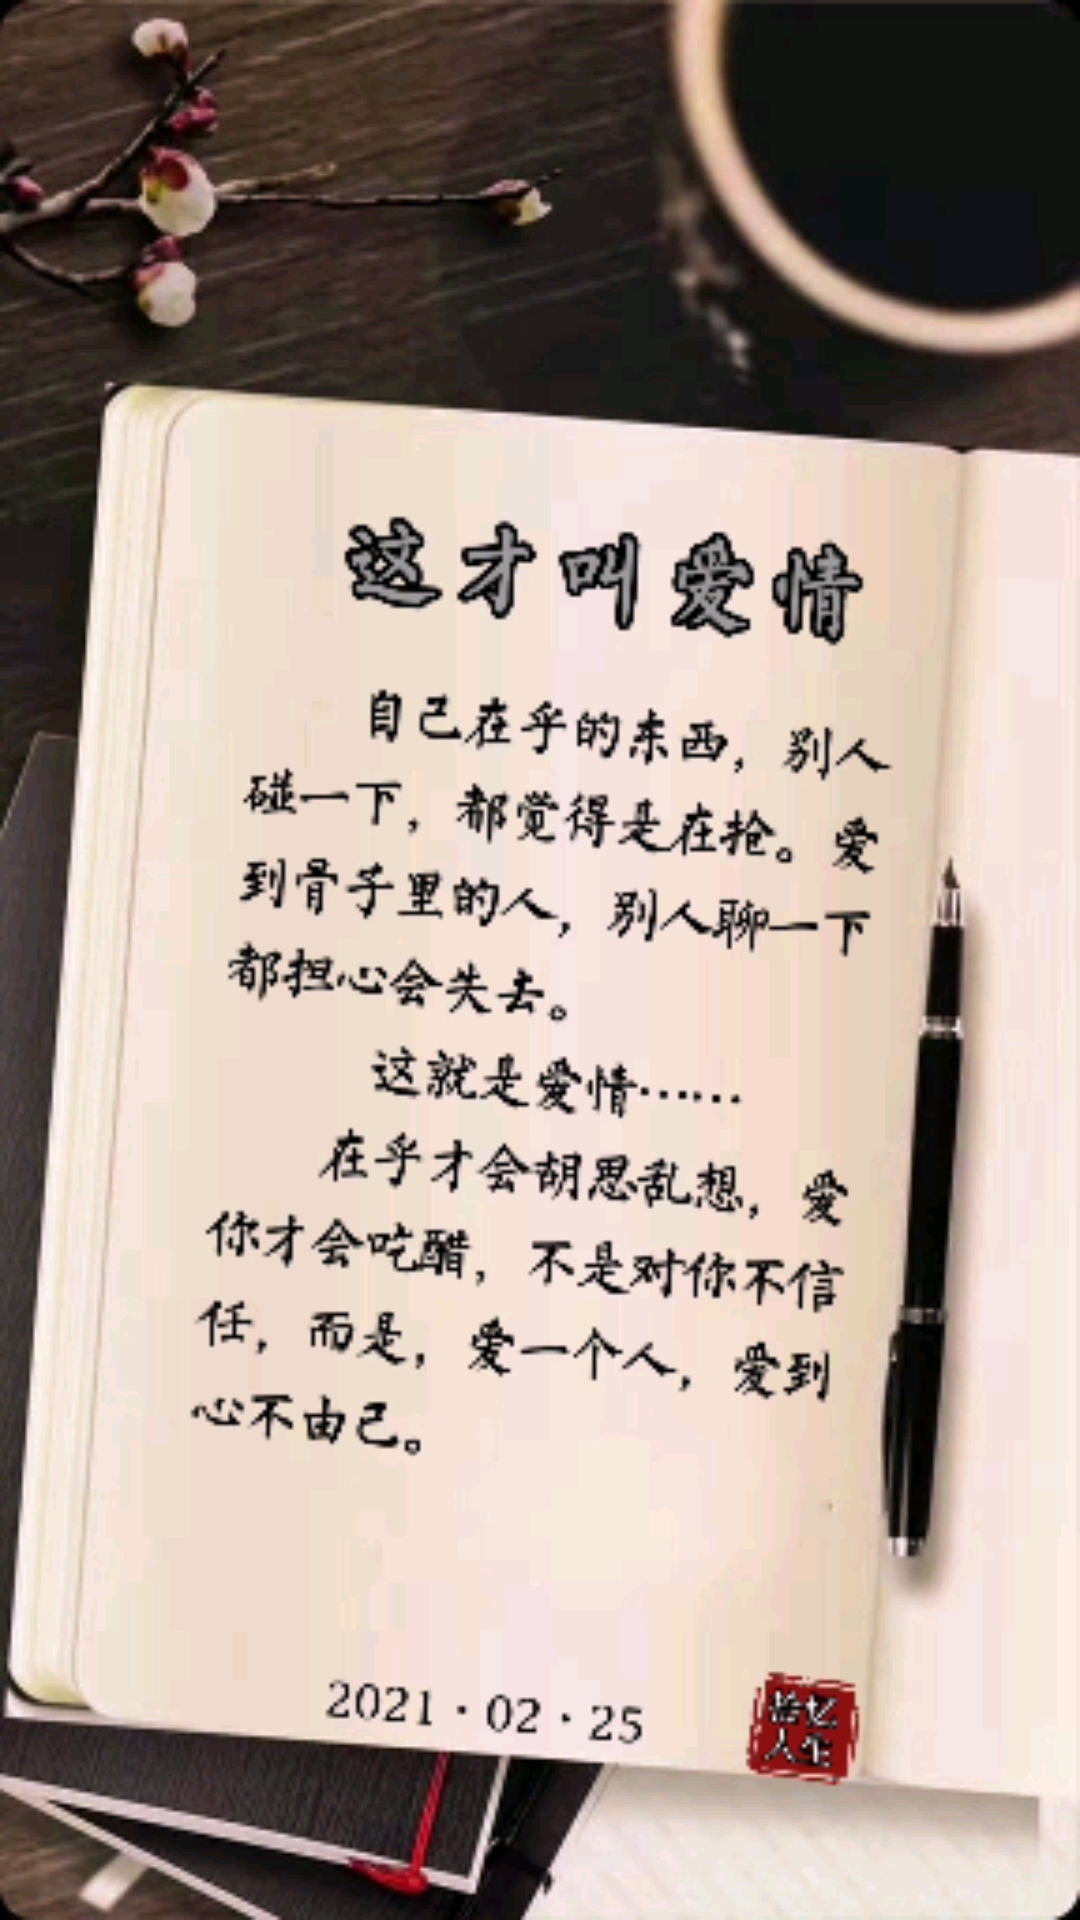 这才叫爱情
自己在乎的东西，别人
碰一下，都觉得是在抢。爱
到骨子里的人，别人聊一下
都担心会失去。
这就是爱情……
在乎才会胡思乱想，爱
你才会吃醋，不是对你不信
任，而是，爱一个人，爱到
心不由己。
2021·02·25
忆
人生